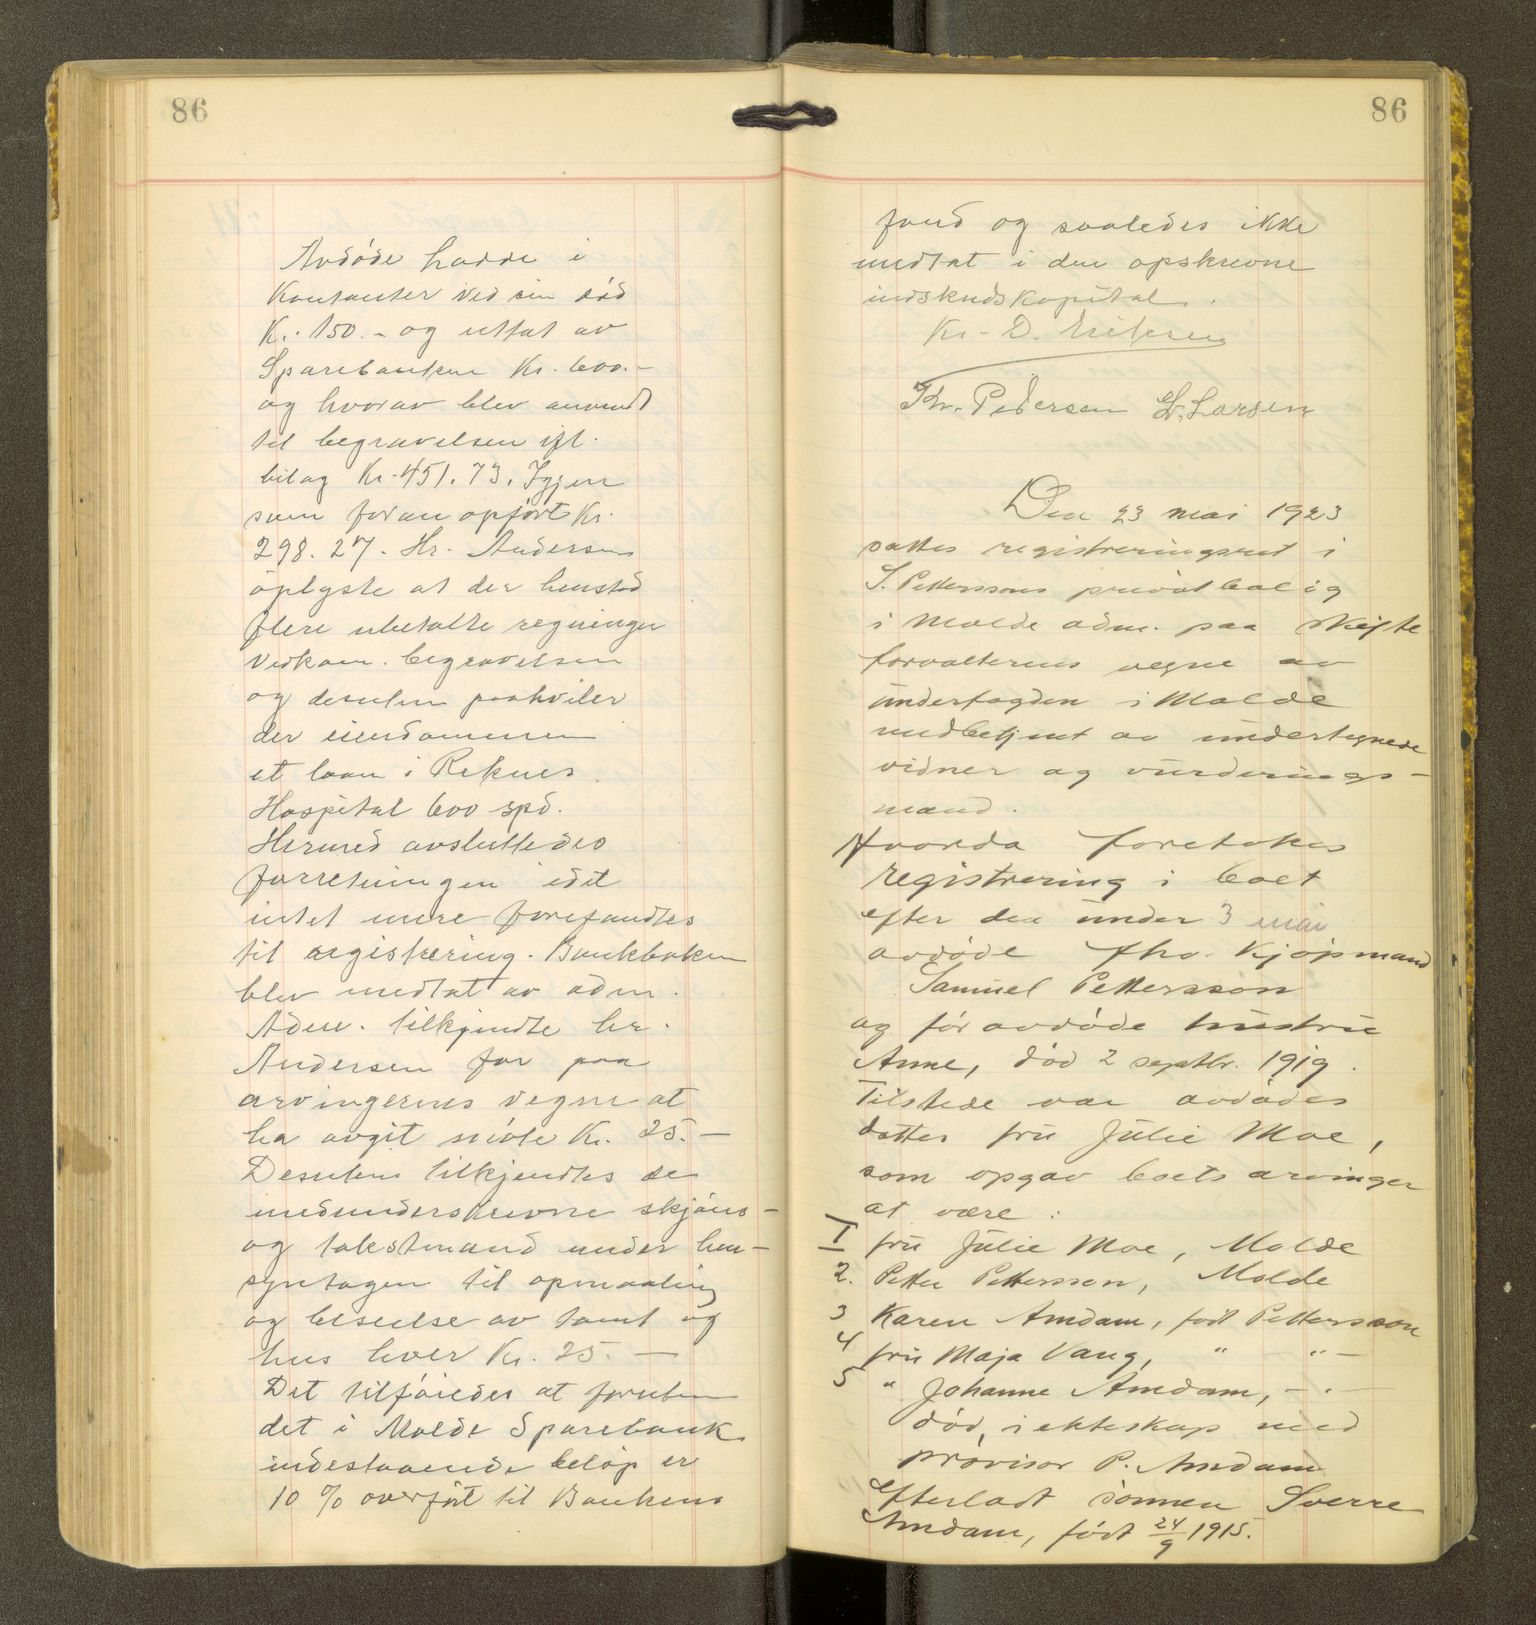 86
Avdöde hadde i
Kontanter ved sin död
Kr. 150.- og uttat av
Sparebanken Kr. 600.-
og hvorav blev anvendt
til begravelsen ifl.
bilag Kr. 451.73. Igjen
som foran opfört Kr.
298.27. Hr. Andersen
oplyste at der henstod
flere ubetalte regninger
vedkom. begravelsen
og desuten paahviler
der eiendommen
et laan i Reknes
Hospital 600 spd.
Hermed avsluttedes
forretningen idet
intet mere forefandtes
til registrering. Bankboken
blev medtat av adm.
Adm. tilkjendte hr.
Andersen for paa
arvingernes vegne at
ha avgit möte Kr. 25.-
Desuten tilkjendtes de
medunderskrevne skjöns-
og takstmænd under hen-
syntagen til opmaaling
og beseelse av tomt og
hus hver Kr. 25.-
Det tilföiedes at foruten
det i Molde Sparebank
indestaaende belöp er
10 % overfört til Bankens
86
fond og saaledes ikke
medtat i den opskrevne
indskudskapital.
Kr. D. Eriksen
Kr. Pedersen L. Larsen
Den 23 mai 1923
sattes registreringsret i
S. Petterssons privatbolig
i Molde adm. paa skifte
forvalterens vegne av
underfogden i Molde
medbetjent av undertegnede
vidner og vurderings-
mænd.
Hvorda foretokes
registrering i boet
efter den under 3 mai
avdöde fhv. Kjöpmand
Samuel Pettersson
og för avdöde hustru
Anne, död 2 septbr. 1919.
Tilstede var avdödes
datter fru Julie Moe,
som opgav boets arvinger
at være:
1 fru Julie Moe, Molde
2. Petter Pettersson, Molde
3 Karen Amdam, födt Pettersson
4 fru Maja Vang, " - " -
5 " Johanne Amdam, - " -
död, i ekteskap med
provisor P. Amdam
Efterladt sönnen Sverre
Amdam, födt 24/9 1915.